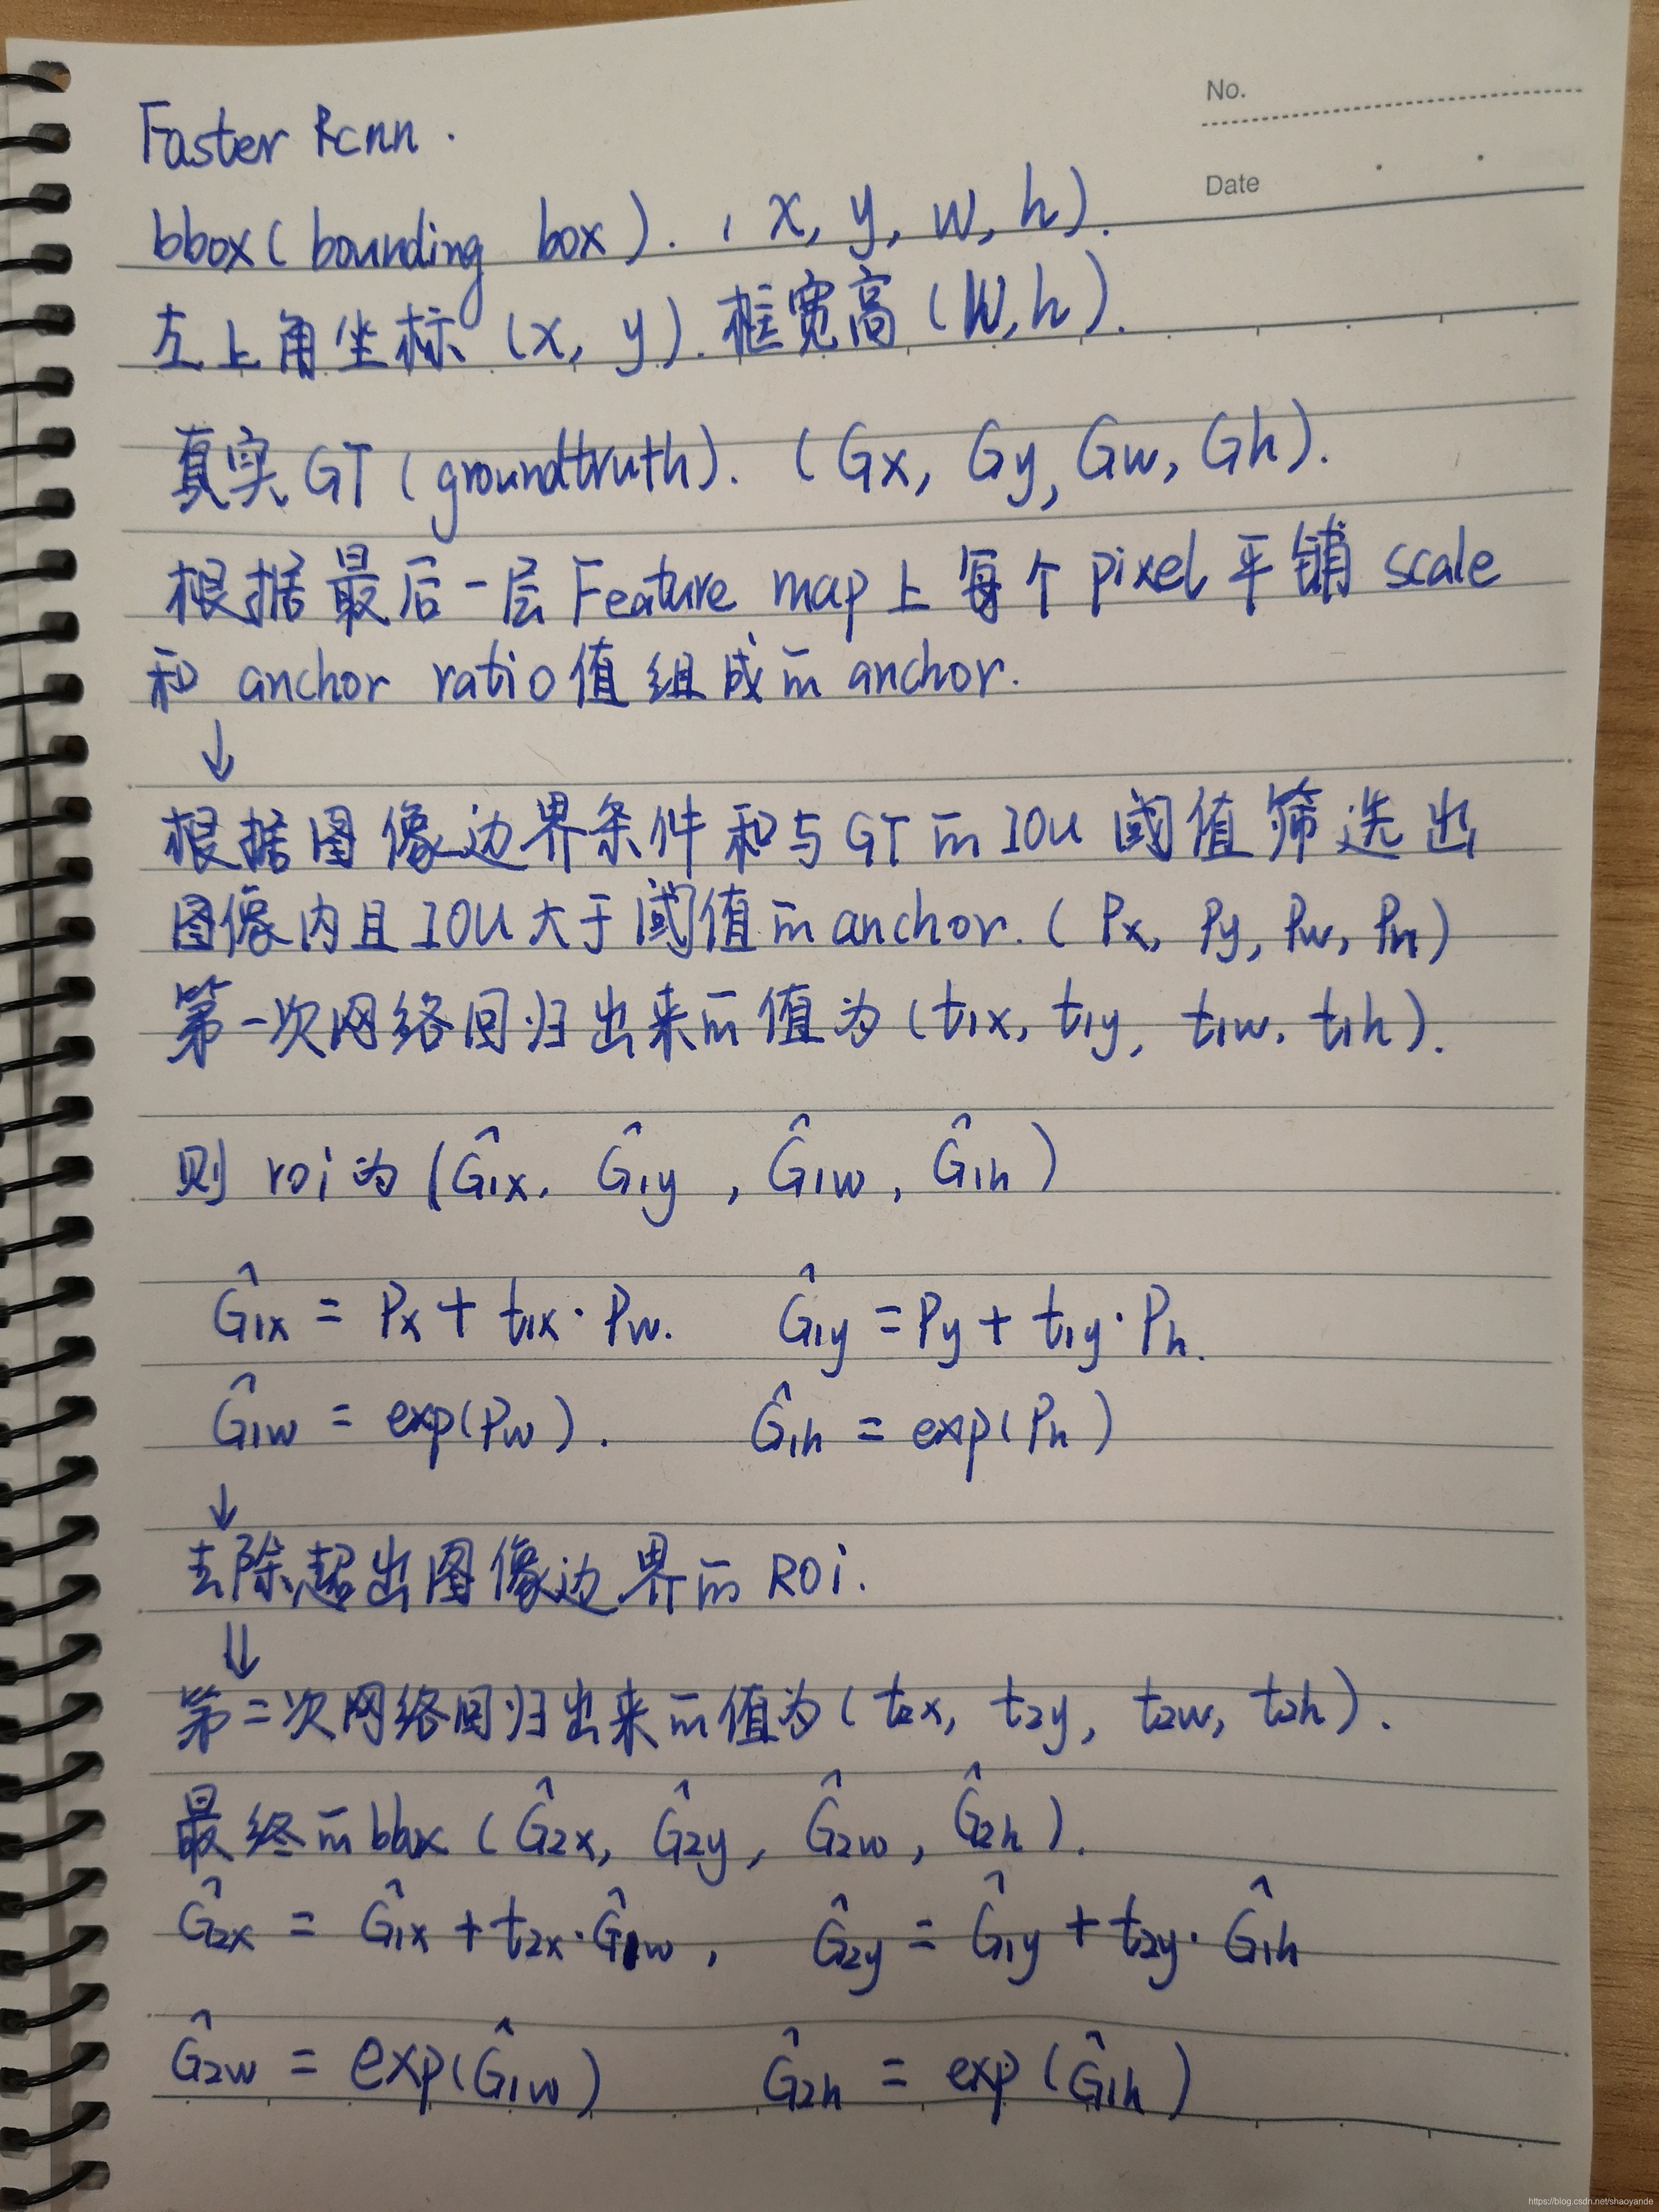 No.
Date
Faster Rcnn.
bbox(bounding box). (x, y, w, h).
左上角坐标 (x, y). 框宽高 (w, h).
真实GT (groundtruth). (Gx, Gy, Gw, Gh).
根据最后一层Feature map上每个pixel平铺scale
和 anchor ratio值组成的anchor.
↓
根据图像边界条件和与GT的IOU阈值筛选出
图像内且IOU大于阈值的anchor. (Px, Py, Pw, Ph)
第一次网络回归出来的值为(t1x, t1y, t1w, t1h).
则 roi为 (Ĝ1x, Ĝ1y, Ĝ1w, Ĝ1h)
Ĝ1x = Px + t1x·Pw. Ĝ1y = Py + t1y·Ph.
Ĝ1w = exp(Pw). Ĝ1h = exp(Ph)
↓
去除超出图像边界的ROi.
⇓
第二次网络回归出来的值为(t2x, t2y, t2w, t2h).
最终的bbox (Ĝ2x, Ĝ2y, Ĝ2w, Ĝ2h).
Ĝ2x = Ĝ1x + t2x·Ĝ1w, Ĝ2y = Ĝ1y + t2y·Ĝ1h
Ĝ2w = exp(Ĝ1w) Ĝ2h = exp(Ĝ1h)
https://blog.csdn.net/shaoyande